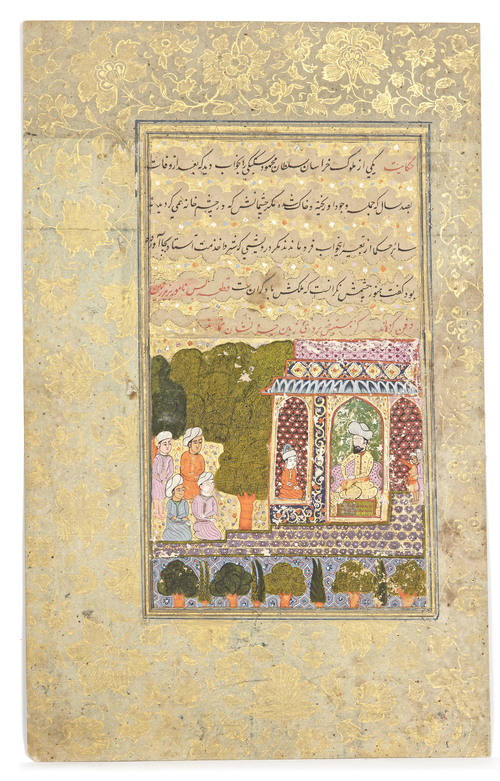 حکایت یکی از ملوک خراسان سلطان محمود سبکتکین را بخواب دید که بعد از وفات
بصد سال که جمله وجود او ریخته و خاک شده مگر چشمانش که در چشم خانه می گردید
سائر حکما از تعبیر خواب فرو ماندند مگر درویشی که شرط خدمت استاد بجا آورده
بود گفت هنوز چشمش نگرانست که ملکش با دگران ست قطعه بس نامور بزیر زمین
دفن کرده‌اند کز هستیش بروی زمین نشان نماند